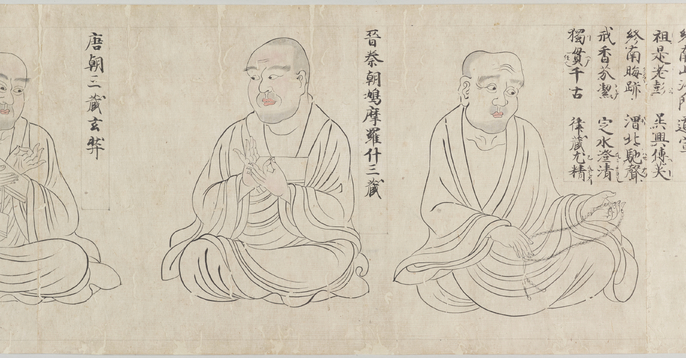 終南山沙門道宣
祖是老彭 呉興傳
終南晦跡 渭北馳聲
戒香芬潔 定水澄清
獨貫千古 律藏尤精
晉秦朝鳩摩羅什三藏
唐朝三藏玄奘